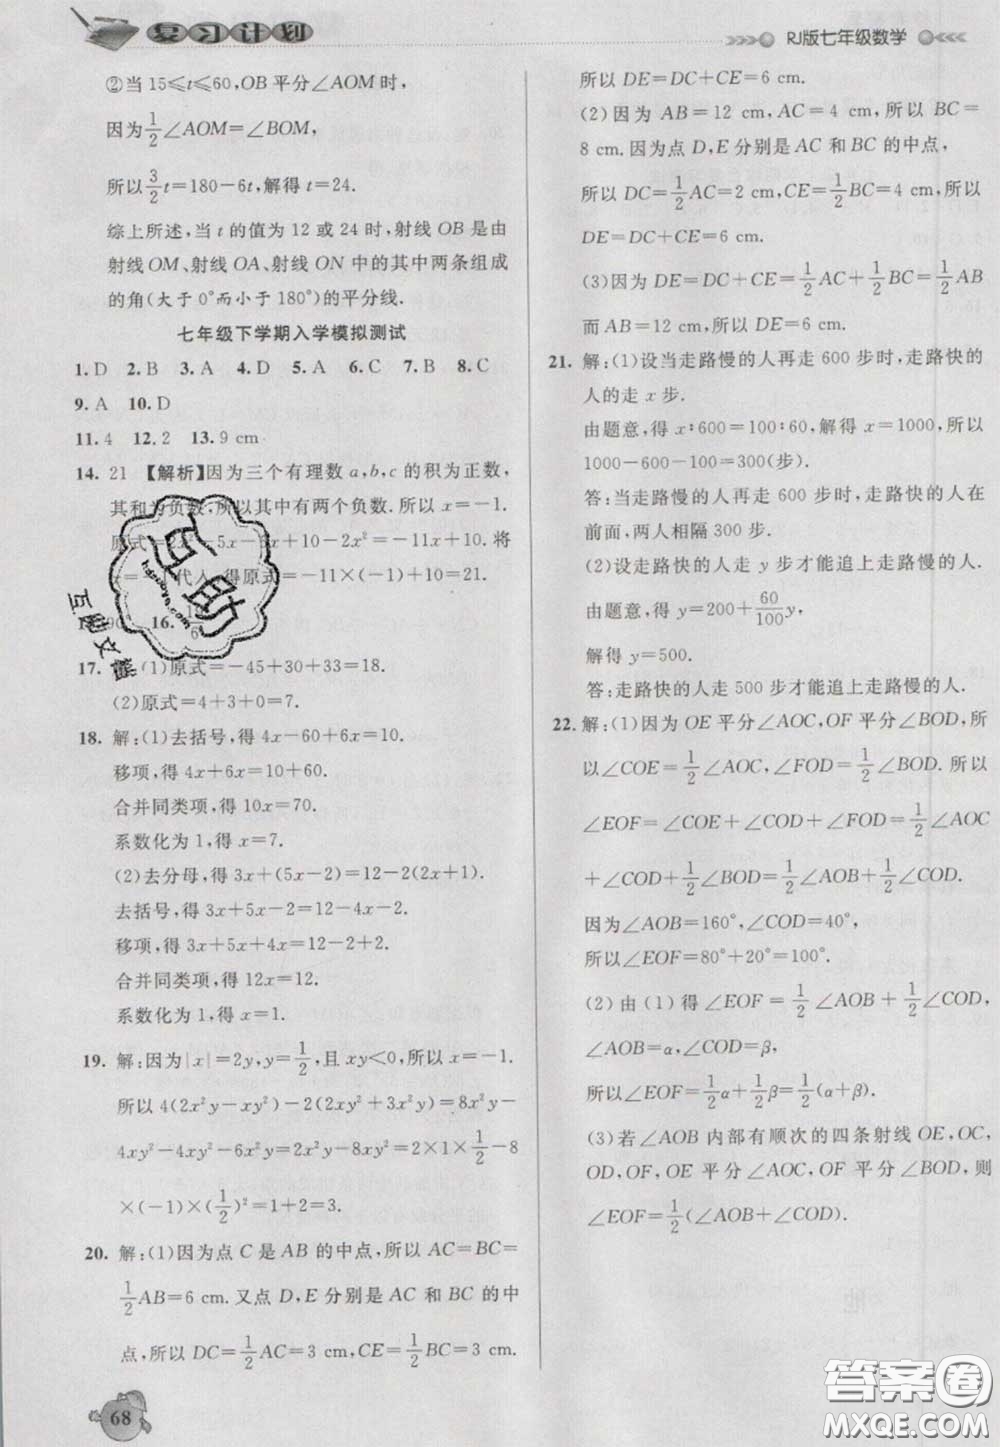 复习计划
RJ版七年级数学
②当 15≤t≤60,OB 平分∠AOM 时,
因为\frac{1}{2}∠AOM=∠BOM,
所以\frac{3}{2}t=180-6t,解得 t=24.
综上所述,当 t 的值为 12 或 24 时,射线 OB 是由
射线 OM、射线 OA、射线 ON 中的其中两条组成
的角(大于 0°而小于 180°)的平分线.
七年级下学期入学模拟测试
1. D 2. B 3. A 4. D 5. A 6. C 7. B 8. C
9. A 10. D
11. 4 12. 2 13. 9 cm
14. 21 【解析】因为三个有理数 a,b,c 的积为正数,
其和为负数,所以其中有两个负数.所以 x=-1.
原式=2x²-5x-6x+10-2x²=-11x+10. 将
代入,得原式=-11×(-1)+10=21.
16.
17. (1)原式=-45+30+33=18.
(2)原式=-4+3+0=7.
18. 解:(1)去括号,得 4x-60+6x=10.
移项,得 4x+6x=10+60.
合并同类项,得 10x=70.
系数化为 1,得 x=7.
(2)去分母,得 3x+(5x-2)=12-2(2x+1).
去括号,得 3x+5x-2=12-4x-2.
移项,得 3x+5x+4x=12-2+2.
合并同类项,得 12x=12.
系数化为 1,得 x=1.
19. 解:因为|x|=2y,y=\frac{1}{2},且 xy<0,所以 x=-1.
所以 4(2x²y-xy²)-2(2xy²+3x²y)=8x²y-
4xy²-4xy²-6x²y=2x²y-8xy²=2×1×\frac{1}{2}-8
×(-1)×(\frac{1}{2})²=1+2=3.
20. 解:(1)因为点 C 是 AB 的中点,所以 AC=BC=
\frac{1}{2}AB=6 cm.又点 D,E 分别是 AC 和 BC 的中
点,所以 DC=\frac{1}{2}AC=3 cm,CE=\frac{1}{2}BC=3 cm.
68
所以 DE=DC+CE=6 cm.
(2)因为 AB=12 cm,AC=4 cm,所以 BC=
8 cm.因为点 D,E 分别是 AC 和 BC 的中点,
所以 DC=\frac{1}{2}AC=2 cm,CE=\frac{1}{2}BC=4 cm.所以
DE=DC+CE=6 cm.
(3)因为 DE=DC+CE=\frac{1}{2}AC+\frac{1}{2}BC=\frac{1}{2}AB
而 AB=12 cm,所以 DE=6 cm.
21. 解:(1)设当走路慢的人再走 600 步时,走路快的
人的走 x 步.
由题意,得 x∶600=100∶60,解得 x=1000,所以
1000-600-100=300(步).
答:当走路慢的人再走 600 步时,走路快的人在
前面,两人相隔 300 步.
(2)设走路快的人走 y 步才能追上走路慢的人.
由题意,得 y=200+\frac{60}{100}y,
解得 y=500.
答:走路快的人走 500 步才能追上走路慢的人.
22. 解:(1)因为 OE 平分∠AOC,OF 平分∠BOD,所
以∠COE=\frac{1}{2}∠AOC,∠FOD=\frac{1}{2}∠BOD. 所以
∠EOF=∠COE+∠COD+∠FOD=\frac{1}{2}∠AOC
+∠COD+\frac{1}{2}∠BOD=\frac{1}{2}∠AOB+\frac{1}{2}∠COD.
因为∠AOB=160°,∠COD=40°,
所以∠EOF=80°+20°=100°.
(2)由(1)得∠EOF=\frac{1}{2}∠AOB+\frac{1}{2}∠COD,
∠AOB=α,∠COD=β,
所以∠EOF=\frac{1}{2}α+\frac{1}{2}β=\frac{1}{2}(α+β).
(3)若∠AOB 内部有顺次的四条射线 OE,OC,
OD,OF,OE 平分∠AOC,OF 平分∠BOD,则
∠EOF=\frac{1}{2}(∠AOB+∠COD).
互助
互助文檔
答案圈
MXQE.COM